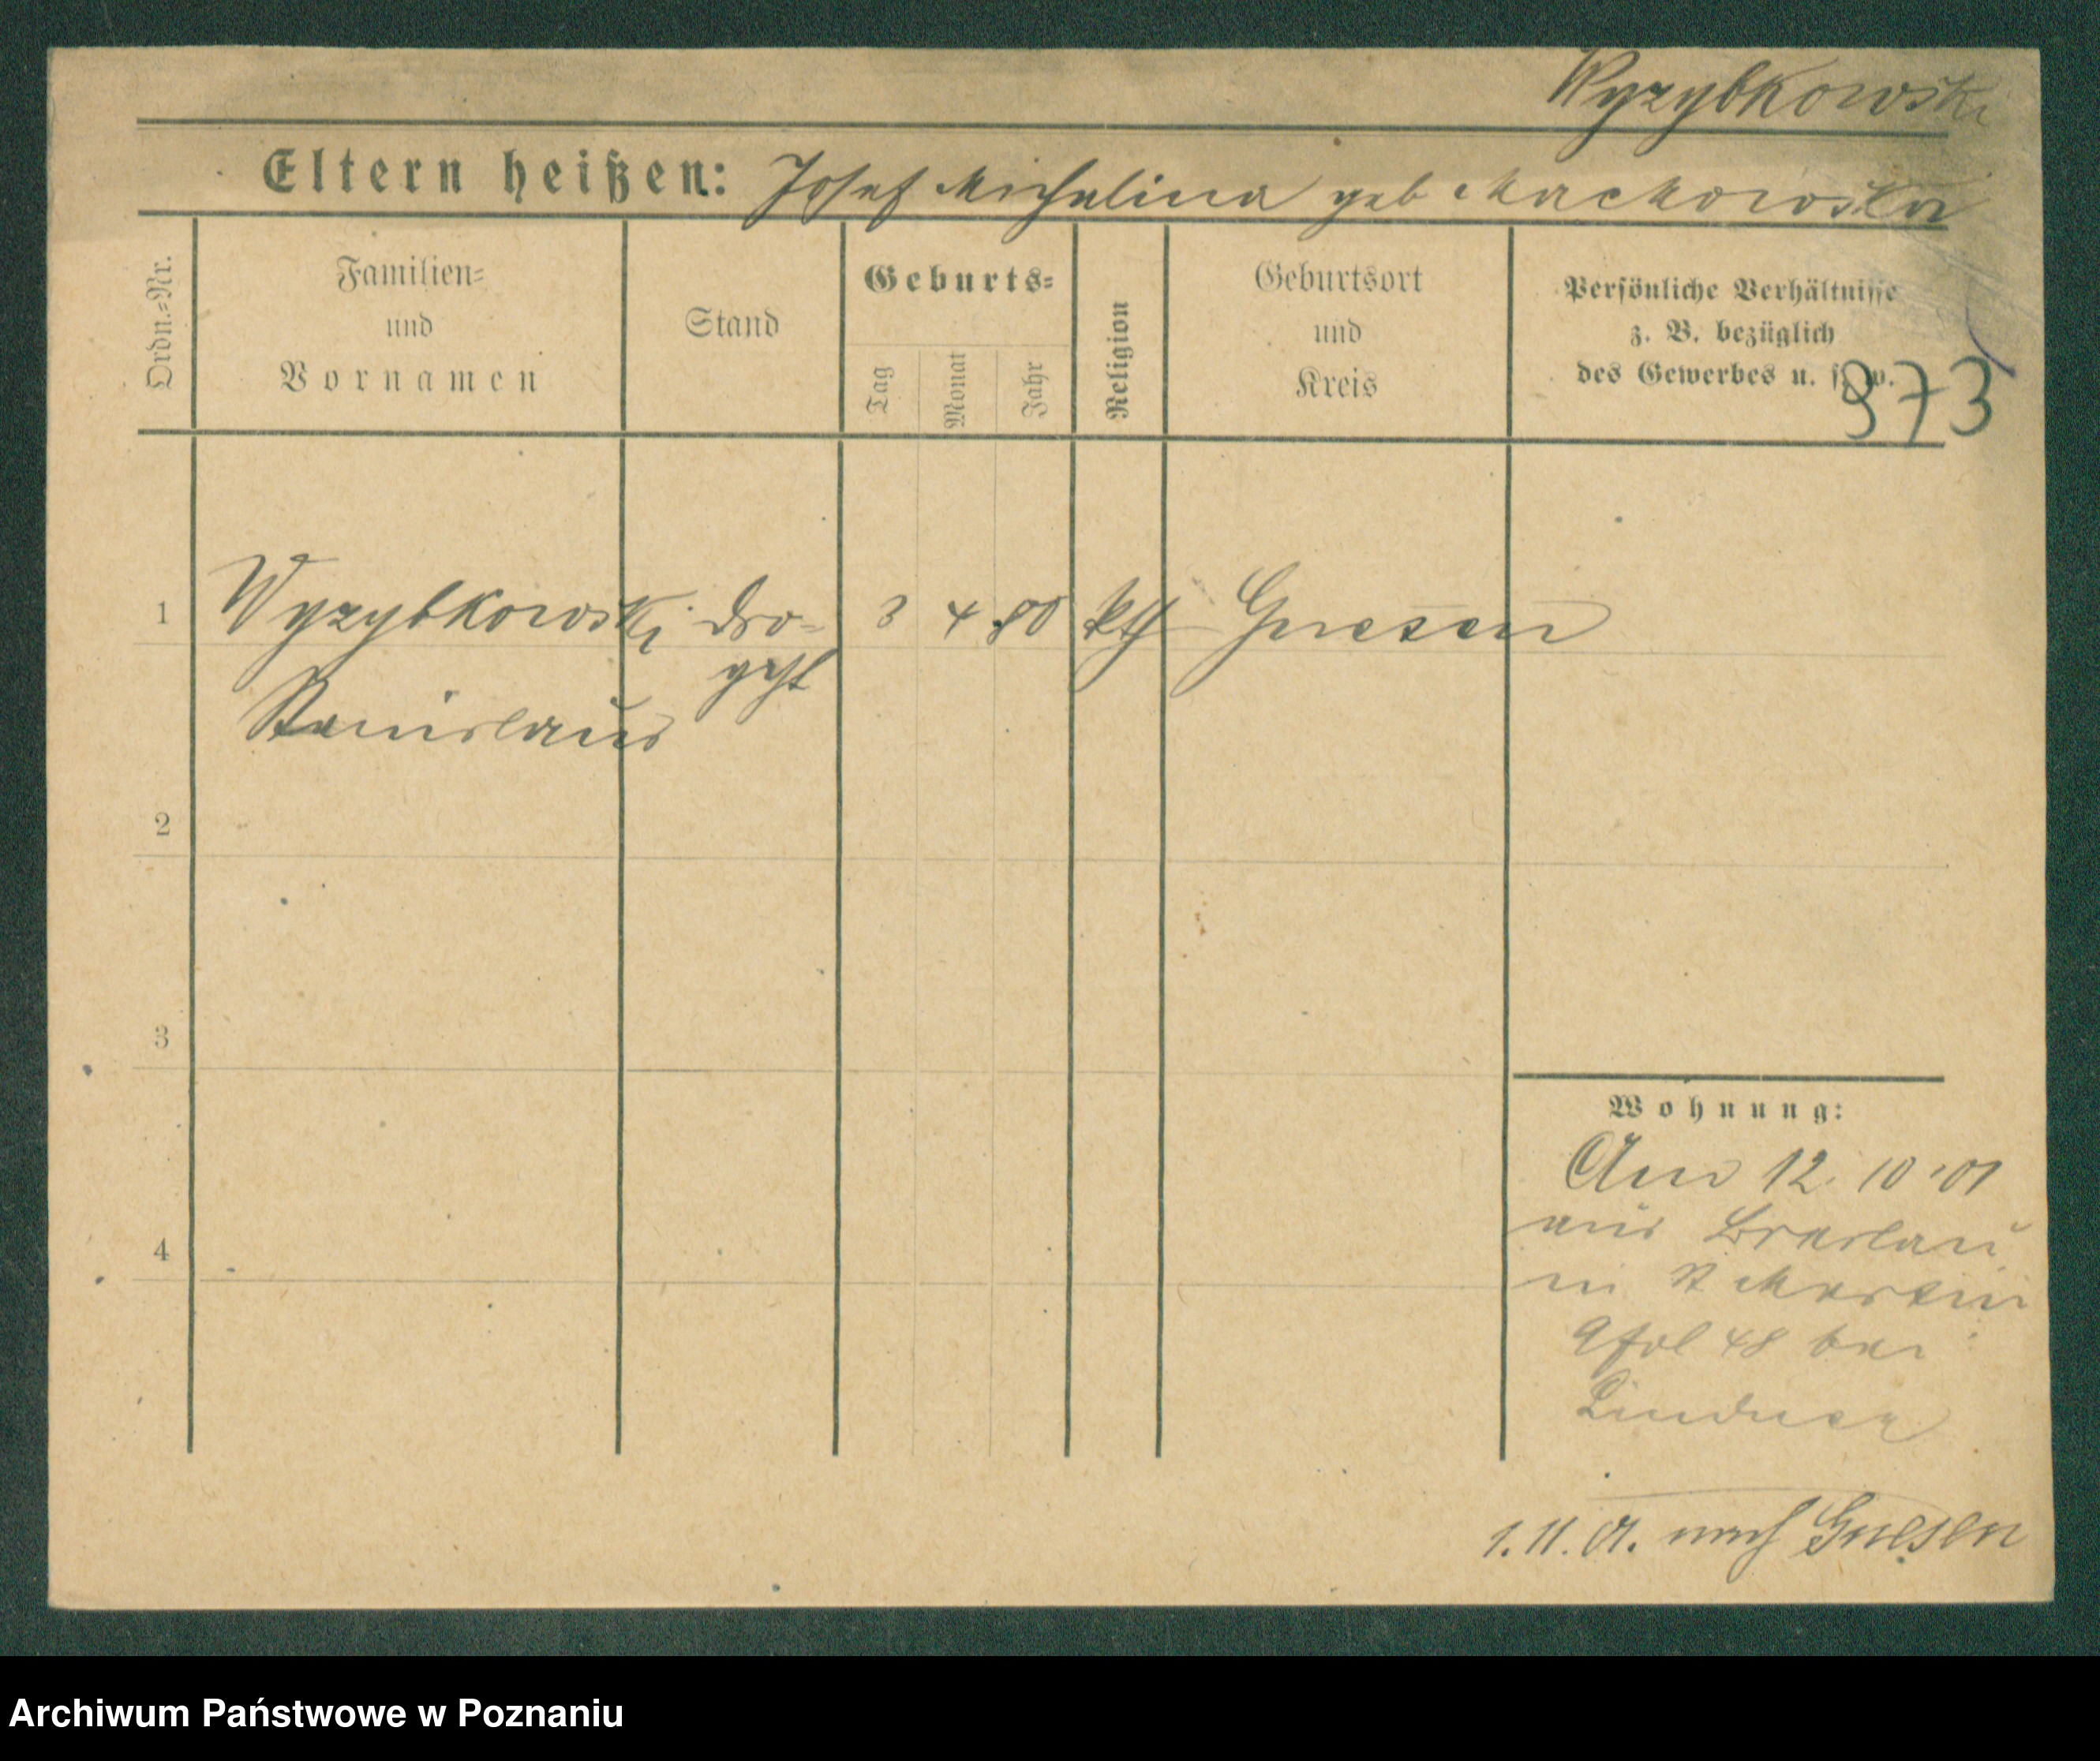 Wyzybkowski
Eltern heißen: Josef Michalina geb Mackowska
Ordn.=Nr.
Familien=
und
Vornamen
Stand
Geburts=
Tag
Monat
Jahr
Religion
Geburtsort
und
Kreis
Persönliche Verhältnisse
z. B. bezüglich
des Gewerbes u. s. w.
973
1 Wyzybkowski Dro= 3 4 80 kth Gnesen
gist
Stanislaus
2
3
4
Wohnung:
12. 10. 01
aus Breslau
in St Martin
48 bei
Lindner
1. 11. 01. nach Gnesen
Archiwum Państwowe w Poznaniu